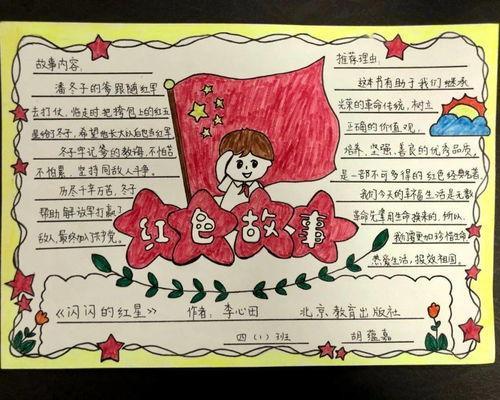 故事内容:
潘冬子的爸跟随红军
去打仗,临走时把挎包上的红五
星给了冬子,希望他长大以后也当红军
冬子牢记爸的教诲,不怕苦
不怕累,坚持同敌人斗争。
历尽千辛万苦,冬子
帮助解放军打赢了
敌人,最终加入共产党。
红色故事
推荐理由:
这本书有助于我们继承
光荣的革命传统,树立
正确的价值观,
培养坚强、善良的优秀品质,
是一部不可多得的红色经典著
我们今天的幸福生活是无数
革命先辈用生命换来的,所以,
我们要更加珍惜生命
热爱生活,报效祖国。
《闪闪的红星》 作者:李心田 北京教育出版社
四(1)班 胡蕴嘉